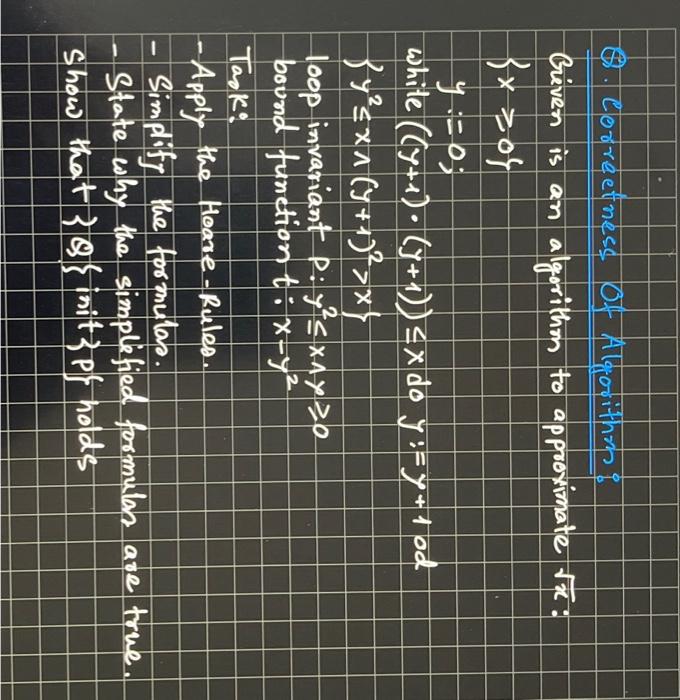 Q. Correctness Of Algorithm:
Given is an algorithm to approximate √x:
{x ≥ 0}
y := 0;
while ((y+1)·(y+1)) ≤ x do y := y+1 od
{y² ≤ x ∧ (y+1)² > x}
loop invariant p: y² ≤ x ∧ y ≥ 0
bound function t: x - y²
Task:
- Apply the Hoare-Rules.
- Simplify the formulas.
- State why the simplefied formulas are true.
Show that {Q} init {P} holds